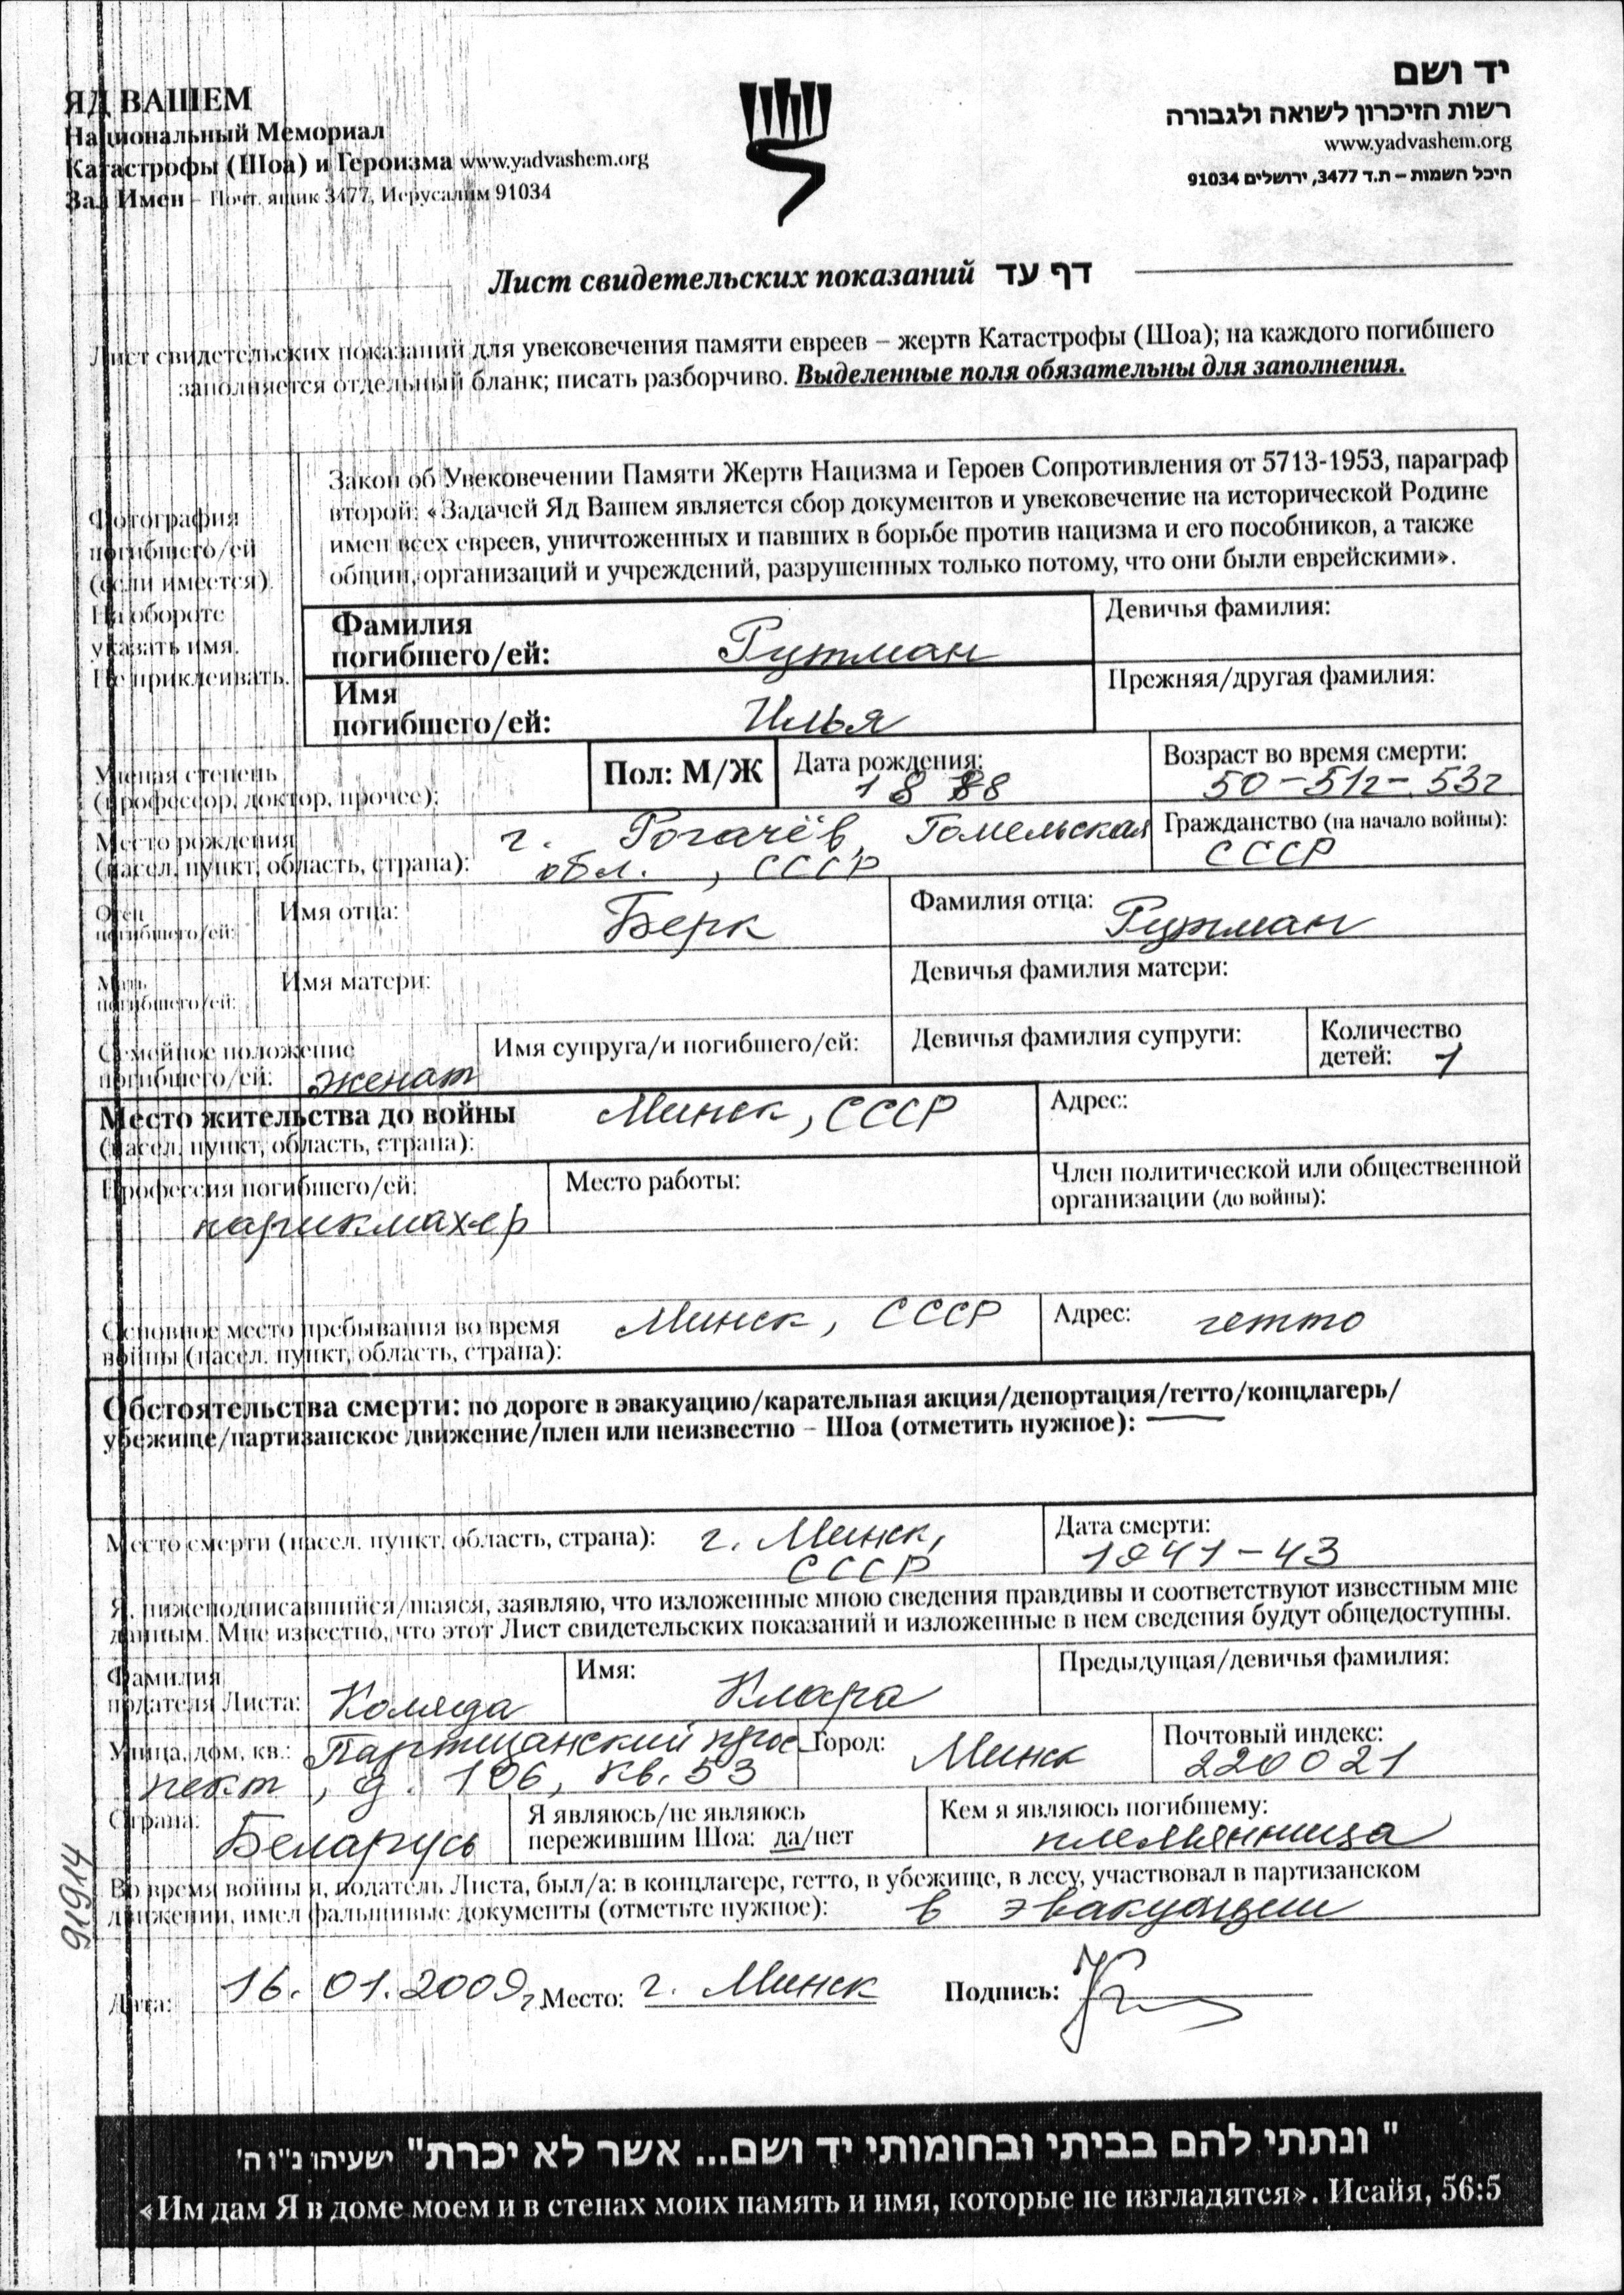 ЯД ВАШЕМ
Национальный Мемориал
Катастрофы (Шоа) и Героизма www.yadvashem.org
Зал Имен – Почт. ящик 3477, Иерусалим 91034
יד ושם
רשות הזיכרון לשואה ולגבורה
www.yadvashem.org
היכל השמות – ת.ד 3477, ירושלים 91034
Лист свидетельских показаний דף עד
Лист свидетельских показаний для увековечения памяти евреев – жертв Катастрофы (Шоа); на каждого погибшего
заполняется отдельный бланк; писать разборчиво. Выделенные поля обязательны для заполнения.
Фотография
погибшего/ей
(если имеется).
На обороте
указать имя.
Не приклеивать.
Закон об Увековечении Памяти Жертв Нацизма и Героев Сопротивления от 5713-1953, параграф
второй: «Задачей Яд Вашем является сбор документов и увековечение на исторической Родине
имен всех евреев, уничтоженных и павших в борьбе против нацизма и его пособников, а также
общин, организаций и учреждений, разрушенных только потому, что они были еврейскими».
Фамилия
погибшего/ей: Гутман
Девичья фамилия:
Имя
погибшего/ей: Илья
Прежняя/другая фамилия:
Ученая степень
(профессор, доктор, прочее):
Пол: М/Ж
Дата рождения:
1888
Возраст во время смерти:
50-51г-53г
Место рождения
(насел. пункт, область, страна):
г. Рогачёв, Гомельская
обл., СССР
Гражданство (на начало войны):
СССР
Отец
погибшего/ей:
Имя отца: Берк
Фамилия отца: Гутман
Мать
погибшего/ей:
Имя матери:
Девичья фамилия матери:
Семейное положение
погибшего/ей: женат
Имя супруга/и погибшего/ей:
Девичья фамилия супруги:
Количество
детей: 1
Место жительства до войны
(насел. пункт, область, страна):
Минск, СССР
Адрес:
Профессия погибшего/ей:
парикмахер
Место работы:
Член политической или общественной
организации (до войны):
Основное место пребывания во время
войны (насел. пункт, область, страна):
Минск, СССР
Адрес: гетто
Обстоятельства смерти: по дороге в эвакуацию/карательная акция/депортация/гетто/концлагерь/
убежище/партизанское движение/плен или неизвестно – Шоа (отметить нужное):
Место смерти (насел. пункт, область, страна): г. Минск,
СССР
Дата смерти:
1941-43
Я, нижеподписавшийся/шаяся, заявляю, что изложенные мною сведения правдивы и соответствуют известным мне
данным. Мне известно, что этот Лист свидетельских показаний и изложенные в нем сведения будут общедоступны.
Фамилия
подателя Листа: Коляда
Имя: Клара
Предыдущая/девичья фамилия:
Улица, дом, кв.: Партизанский прос
пект, д. 106, кв. 53
Город: Минск
Почтовый индекс:
220021
Страна: Беларусь
Я являюсь/не являюсь
пережившим Шоа: да/нет
Кем я являюсь погибшему:
племянница
Во время войны я, податель Листа, был/а: в концлагере, гетто, в убежище, в лесу, участвовал в партизанском
движении, имел фальшивые документы (отметьте нужное): в эвакуации
91914
Дата: 16.01.2009г. Место: г. Минск Подпись:
" ונתתי להם בביתי ובחומותי יד ושם... אשר לא יכרת" ישעיהו נ"ו ה'
«Им дам Я в доме моем и в стенах моих память и имя, которые не изгладятся». Исайя, 56:5